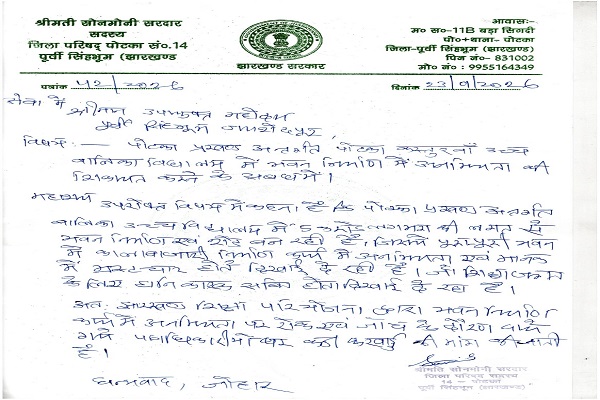 श्रीमती सोनमोनी सरदार
सदस्य
जिला परिषद् पोटका सं०.14
पूर्वी सिंहभूम (झारखण्ड)
झारखण्ड सरकार
आवासः-
म० सं०-11B बड़ा सिगदी
पो०+थाना- पोटका
जिला-पूर्वी सिंहभूम (झारखण्ड)
पिन नं०- 831002
मो० नं० : 9955164349
पत्रांक 42/2026
दिनांक 23/9/2026
सेवा में
श्रीमान उपायुक्त महोदय
पूर्वी सिंहभूम जमशेदपुर,
विषय:- पोटका प्रखण्ड अन्तर्गत पोटका कस्तुरबाँ उच्च
बालिका विद्यालय में भवन निर्माण में अनियमिता की
शिकायत करने के संबंध में।
महाशय
उपरोक्त विषय में कहना है कि पोटका प्रखण्ड अन्तर्गत
बालिका उच्च विद्यालय में 5 करोड़ लगभग की लागत से
भवन निर्माण एवं शेड बन रही है, जिसमें पुरा भवन
में कालाबाजारी निर्माण कार्य में अनियमिता एवं भवन
में भ्रष्टाचार होते दिखाई दे रही है। जो शिक्षा जगत
के लिए हानि कारक साबित होता दिखाई दे रहा है।
अतः झारखण्ड शिक्षा परियोजना द्वारा भवन निर्माण
कार्य में अनियमिता पर रोक एवं जांच के दौरान पाये
गये पदाधिकारी पर कड़ी कारवाई की मांग की जाती
है।
धन्यवाद, जोहार
श्रीमति सोनमोनी सरदार
जिला परिषद सदस्य
14 - पोटका
पूर्वी सिंहभूम (झारखण्ड)